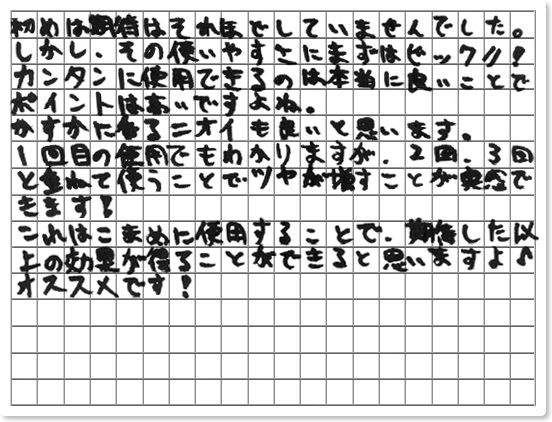 初めは期待はそれほどしていませんでした。
しかし、その使いやすさにまずはビックリ!
カンタンに使用できるのは本当に良いことで
ポイントは高いですよね。
かすかに香るニオイも良いと思います。
1回目の使用でもわかりますが、2回、3回
と重ねて使うことでツヤが増すことが実感で
きます!
これはこまめに使用することで、期待した以
上の効果が得ることができると思いますよ♪
オススメです!